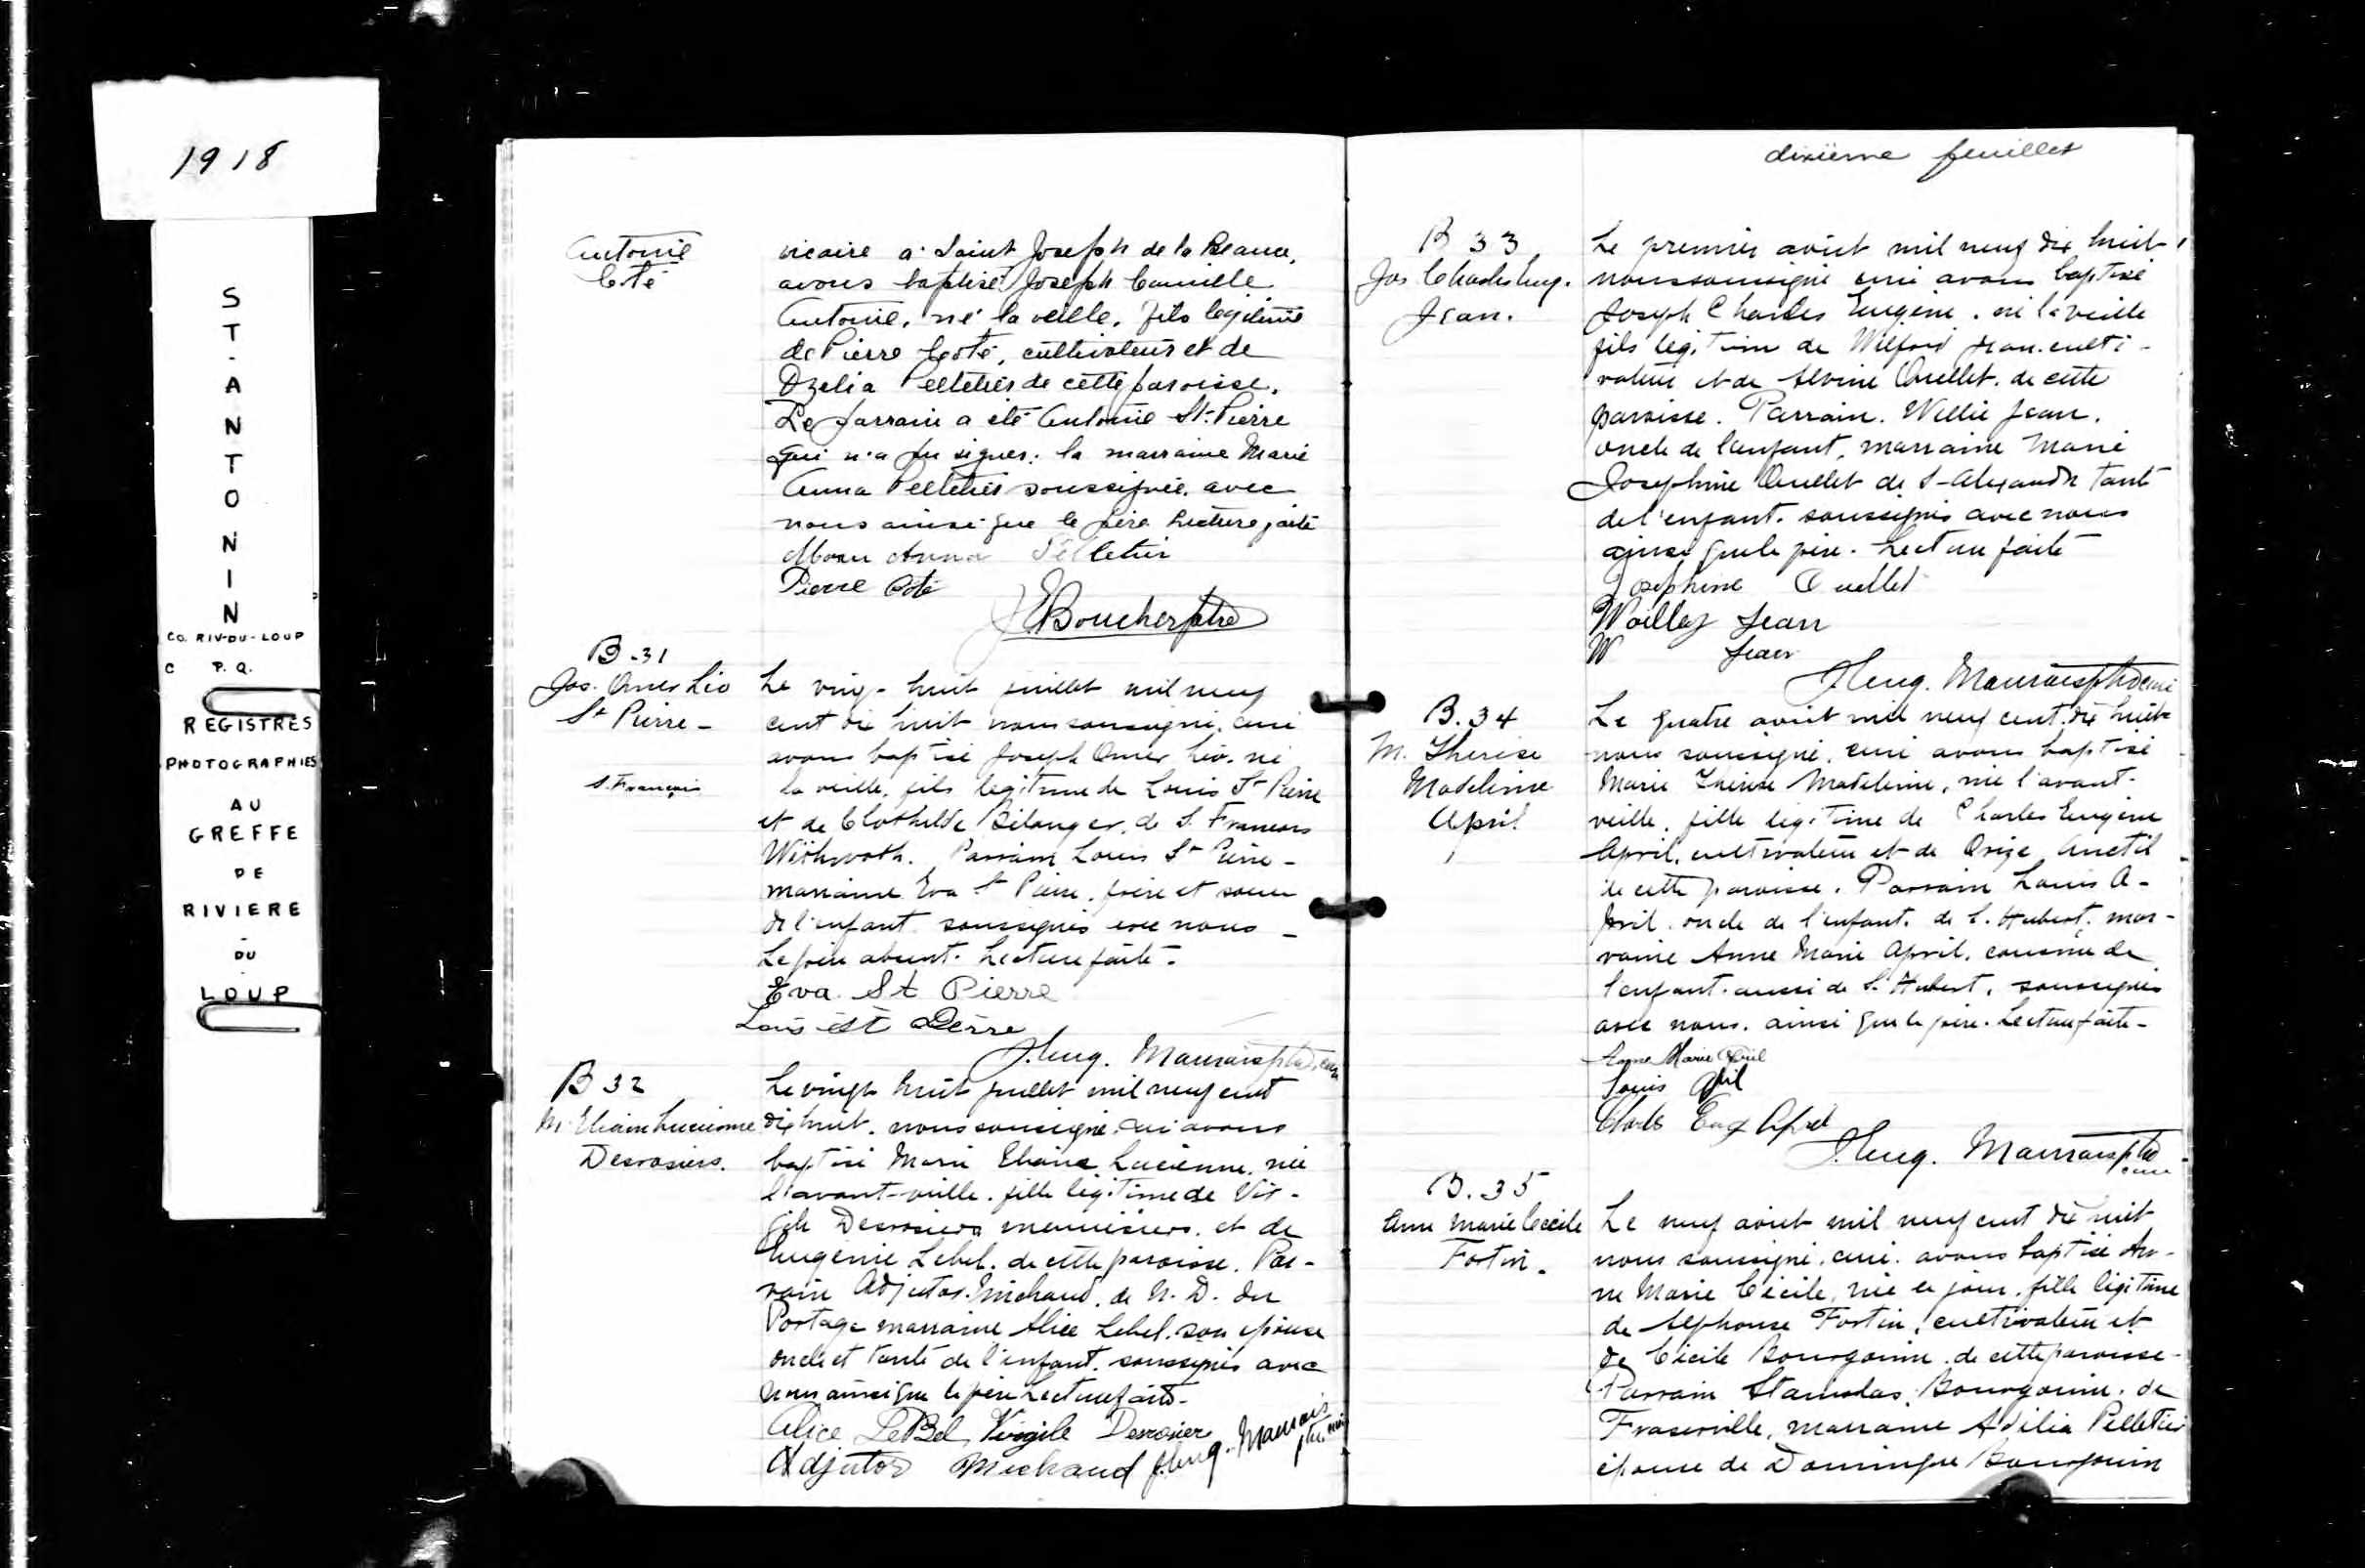 1918
ST. ANTONIN
CO. RIV-DU-LOUP
C P.Q.
REGISTRES
PHOTOGRAPHIES
AU
GREFFE
DE
RIVIERE
-
DU
LOUP
Antonie
Coté
vicaire a Saint Joseph de la Beauce,
avons baptisé Joseph Camille
Antonie, né la veille, fils légitime
de Pierre Coté, cultivateur et de
Ozelia Pelletier de cette paroisse.
Le parrain a été Antonie St-Pierre
qui n'a pu signer; la marraine Marie
Anna Pelletier soussignée avec
nous ainsi que le père. Lecture faite
Anna Pelletier
Pierre Coté
JEBoucher ptre
B.31
Jos. Omer Léo
St Pierre -
S. François
Le ving-huit juillet mil neuf
cent dix huit nous soussigné, curé
avons baptisé Joseph Omer Léo, né
la veille, fils légitime de Louis St Pierre
et de Clothilde Bélanger, de S. François
Parrain Louis St Pierre -
marraine Eva St Pierre, frère et soeur
de l'enfant soussignés avec nous -
Le père absent. Lecture faite -
Eva St Pierre
Louis St Pierre
J. Eug. Maurais ptre, curé
B 32
M. Eliane Lucienne
Desrosiers.
Le vingt huit juillet mil neuf cent
dix huit, nous soussigné, curé avons
baptisé Marie Eliane Lucienne, née
l'avant-veille, fille légitime de Vir-
gile Desrosiers menuisiers, et de
Eugenie Lebel, de cette paroisse. Par-
rain Adjutor Michaud, de N. D. du
Portage marraine Alice Lebel, son épouse
oncle et tante de l'enfant, soussignés avec
nous ainsi que le père. Lecture faite -
Alice LeBel Virgile Desrosiers
Adjutor Michaud J. Eug. Maurais
ptre curé
dixième feuillet
B 33
Jos Charles Eug.
Jean.
Le premier aout mil neuf dix huit
nous soussigné curé avons baptisé
Joseph Charles Eugène, né la veille
fils légitime de Wilford Jean, culti-
vateur et de Alvine Ouellet, de cette
paroisse. Parrain, Willie Jean,
oncle de l'enfant, marraine Marie
Josephine Ouellet de S-Alexandre tante
de l'enfant, soussignés avec nous
ainsi que le père. Lecture faite
Josephine Ouellet
Jean
W Jean
J. Eug. Maurais ptre curé
B.34
M. Therese
Madeleine
April
Le quatre aout mil neuf cent dix huit
nous soussigné, curé avons baptisé
Marie Thérèse Madeleine, née l'avant-
veille, fille légitime de Charles Eugène
April, cultivateur et de Orize Anctil
de cette paroisse. Parrain Louis A-
pril, oncle de l'enfant, de S. Hubert, mar-
raine Anne Marie April, cousine de
l'enfant, aussi de S. Hubert, soussignés
avec nous, ainsi que le père. Lecture faite -
Anne Marie April
Louis April
Charles Eug April
J. Eug. Maurais ptre
curé
B.35
Anne Marie Cécile
Fortin.
Le neuf aout mil neuf cent dix huit
nous soussigné, curé, avons baptisé An-
ne Marie Cécile, née ce jour, fille légitime
de Alphonse Fortin, cultivateur et
de Cécile Bourgouin, de cette paroisse -
Parrain Stanislas Bourgouin, de
Fraserville, marraine Adilia Pelletier
épouse de Dominique Bourgouin